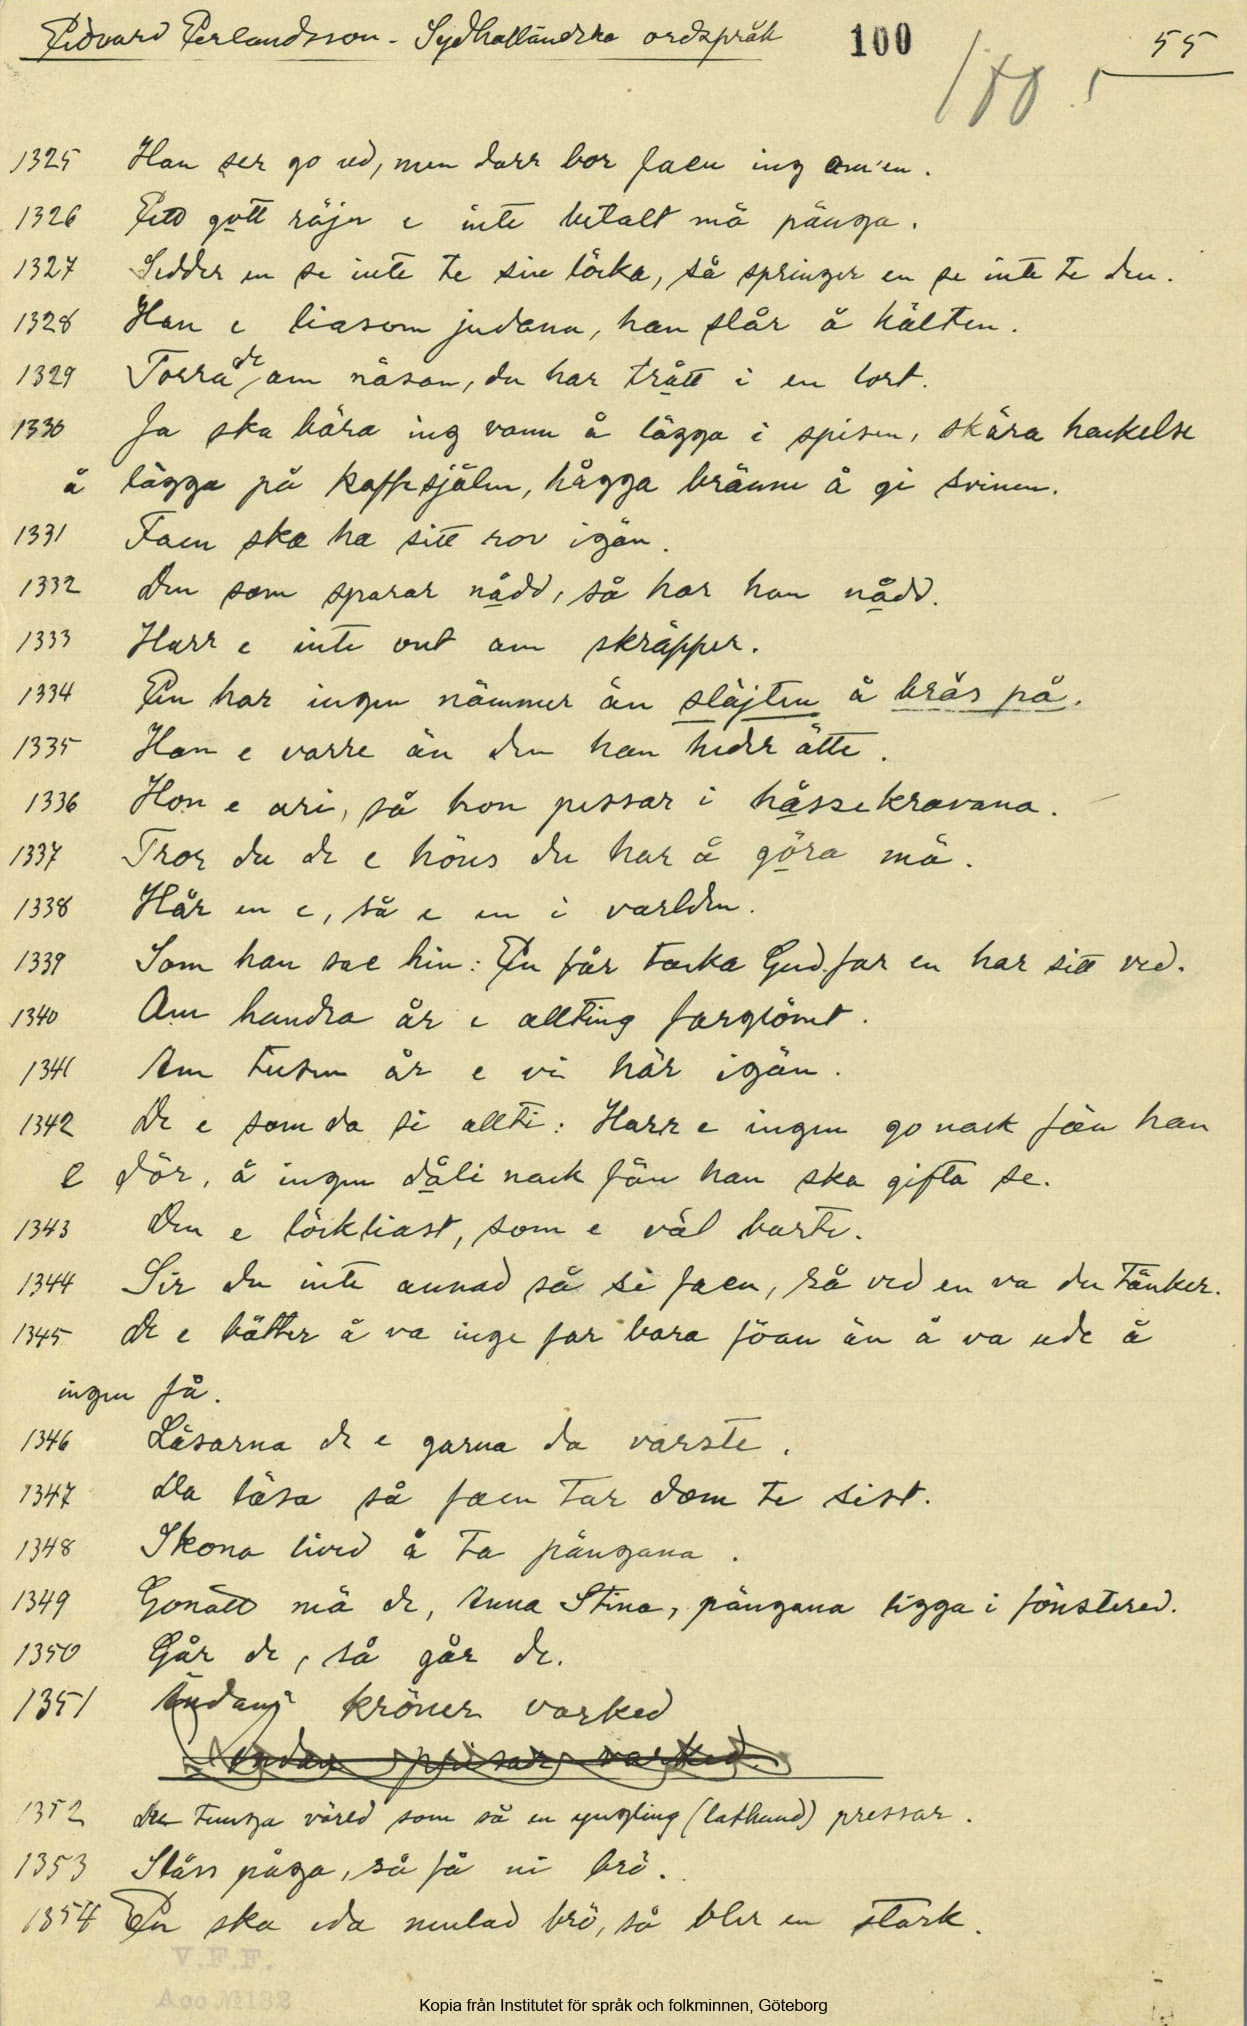 Edvard Perlandsson - Sydhalländska ordspråk 100 55
1325 Han ser go ud, men darr bor faen ing om'en.
1326 Ett gott råjn e inte betalt mä pänga.
1327 Sedder en se inte te sin löcka, så springer en se inte te den.
1328 Han e liasom judana, han slår å hälten.
1329 Torra de am näsan, du har trått i en lort.
1330 Ja ska bära ing vann å lägga i spisen, skära hackelse
å lägga på kaffesjäln, hågga bränne å gi svinen.
1331 Faen ska ha sitt rov igän.
1332 Den som sparar nådd, så har han nådd.
1333 Harr e inte ont am skräpper.
1334 En har ingen nämmer än släjten å brås på.
1335 Han e varre än den han heder ätte.
1336 Hon e ari, så hon pissar i håssekravana.
1337 Tror du de e höns du har å göra mä.
1338 Hår en e, så e en i varlden.
1339 Som han sae hin: En får tacka Gud far en har sitt ved.
1340 Am hundra år e allting farglömt.
1341 Am tusen år e vi här igän.
1342 De e som da si allti: Harr e ingen go nack fän han
e dör, å ingen dåli nack fän han ska gifta se.
1343 Den e löckliast, som e väl barte.
1344 Sir du inte annad så si faen, så ved en va du tänker.
1345 De e bätter å va inge far bara föan än å va ude å
ingen få.
1346 Läsarna de e garna da varste.
1347 Da läsa så faen tar dom te sist.
1348 Skona lived å ta pängana.
1349 Gonatt mä de, Anna Stina, pängana ligga i fönstered.
1350 Går de, så går de.
1351 Ändani kröner varked
1352 Den tunga värld som så en yngling (lathund) pressar.
1353 Slåss påga, så få ni brö.
1354 En ska eda mulad brö, så blir en stark.
V.F.F.
Acc. № 132
Kopia från Institutet för språk och folkminnen, Göteborg